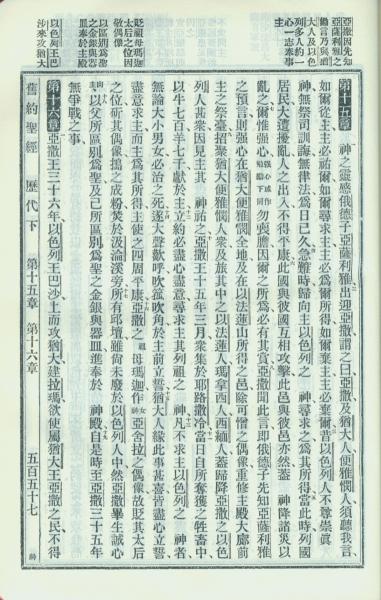 亞撒因先知
亞薩利雅之
言乃與猶
大人及以色
列多人約一
心一志奉事
主
貶祖母瑪迦
太后之位因
敬偶像
以區別爲聖
之金銀與器
皿奉於主殿
以色列王巴
沙來攻猶大
第十五章 神之靈感俄德子亞薩利雅出迎亞撒謂之曰亞撒及猶大人便雅憫人須聽我言
如爾從主主必祐爾如爾尋求主主必爲爾所得如爾棄主主必棄爾昔以色列人不尊崇眞
神無祭司訓誨無律法爲日已久急難時歸向主以色列之 神尋求之爲其所得當此時列國
居民大遭擾亂人之出入不得平康此國與彼國互相攻擊此邑與彼邑亦然蓋 神降諸災以
亂之爾惟強心勿喪膽因爾之所爲必有其賞亞撒聞此言卽俄德子先知亞薩利雅
之預言則強心在猶大便雅憫全地及在以法蓮山所得之邑除可憎之偶像重修主殿大廊前
主之祭臺招聚猶大便雅憫人衆及旅其中之以法蓮人瑪拿西人西緬人蓋歸降亞撒之以色
列人甚衆因見主其 神祐之亞撒王十五年三月衆集於耶路撒冷當日自所奪獲之牲畜中
以牛七百羊七千獻於主立約必盡心盡意尋求主其列祖之 神凡不求主以色列之 神者
無論大小男女必治之死遂大聲歡呼吹號吹角於主前立誓猶大人緣此事甚喜皆盡心立誓
盡意求主而主爲其所得主使之四周平康亞撒之祖母瑪迦作亞舍拉之偶像故貶其太后
之位斫其偶像搗之成粉焚於汲淪溪旁所有邱壇雖尚未廢於以色列人中然亞撒畢生誠心
向主以父所區別爲聖及己所區別爲聖之金銀與器皿進奉於 神殿自是時至亞撒三十五年
無爭戰之事
第十六章 亞撒王三十六年以色列王巴沙上而攻猶大建拉瑪欲使屬猶大王亞撒之民不得
舊約聖經 歷代下 第十五章 第十六章 五百五十七 神